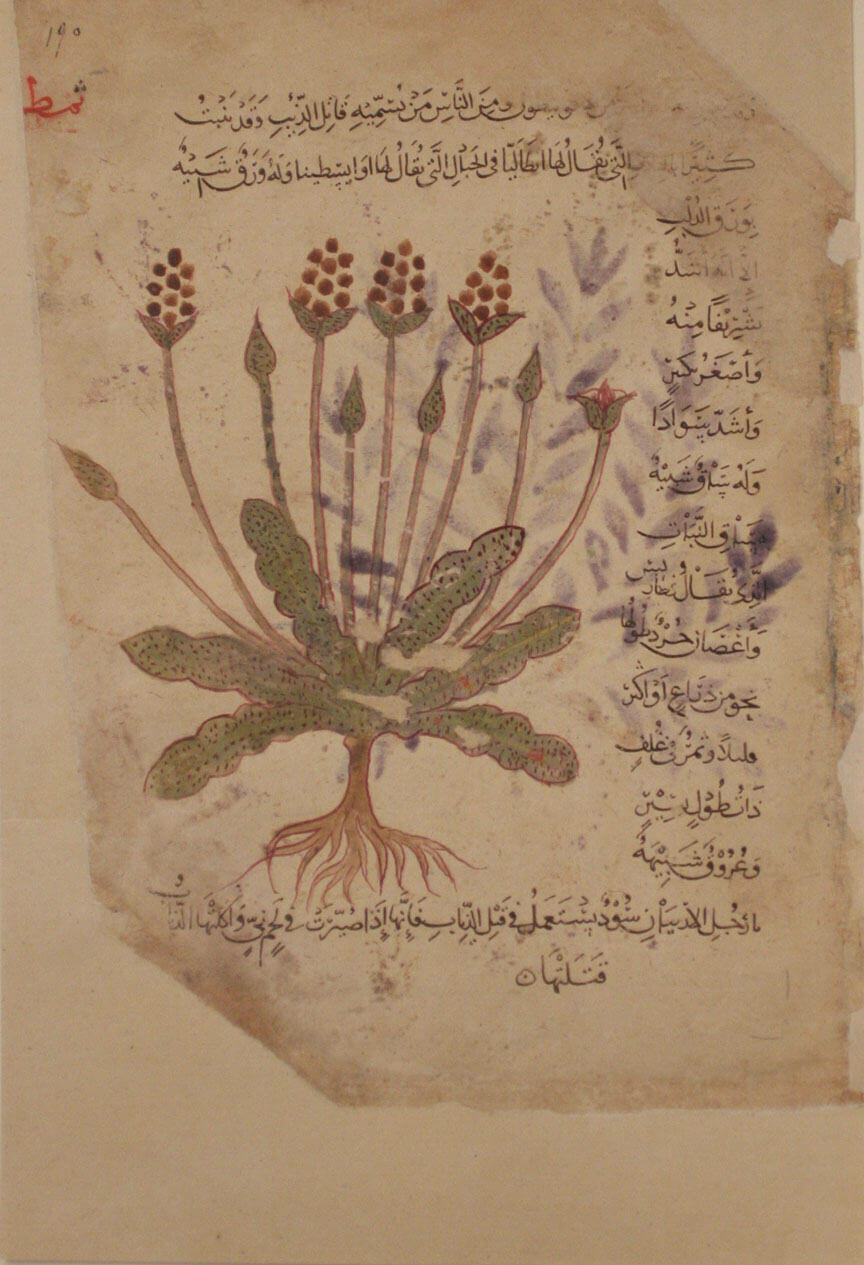 ١٩٥
ثمط
ومن الناس من يسميه قاتل الذئب وقد ينبت
كثيرا التى يقال لها انطاليا فى الجبال التى يقال لها اوايسطينا وله ورق شبيه
بورق الدلب
الا انه اشد
تشريفا منه
وأصغر بكثير
وأشد سوادا
وله ساق شبيه
بساق النبات
الذى يقال
وأغصان جرد طولها
نحو من ذراع أو اكثر
قليلا وثمر فى غلف
ذات طول يسير
وعروق شبيهة
بارجل الاربيان سود يستعمل فى قتل الذياب فانها إذا صيرت فى لحم نى واكلتها الذياب
قتلتها ه